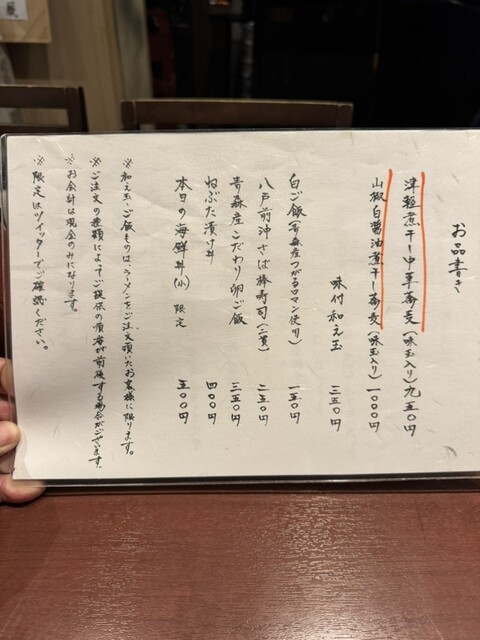 お品書き
津軽煮干し中華蕎麦(味玉入り)九五〇円
山椒白醤油煮干し蕎麦(味玉入り)一〇〇〇円
味付和え玉 三五〇円
白ご飯(青森産つがるロマン使用) 一五〇円
八戸前沖さば棒寿司(二貫) 二五〇円
青森産こだわり卵ご飯 三五〇円
ねぶた漬け丼 四〇〇円
本日の海鮮丼(小) 限定 五〇〇円
※和え玉・ご飯ものは、ラーメンをご注文頂いたお客様に限ります。
※ご注文の種類によってご提供の順番が前後する場合がございます。
※お会計は現金のみになります。
※限定はツイッターでご確認ください。